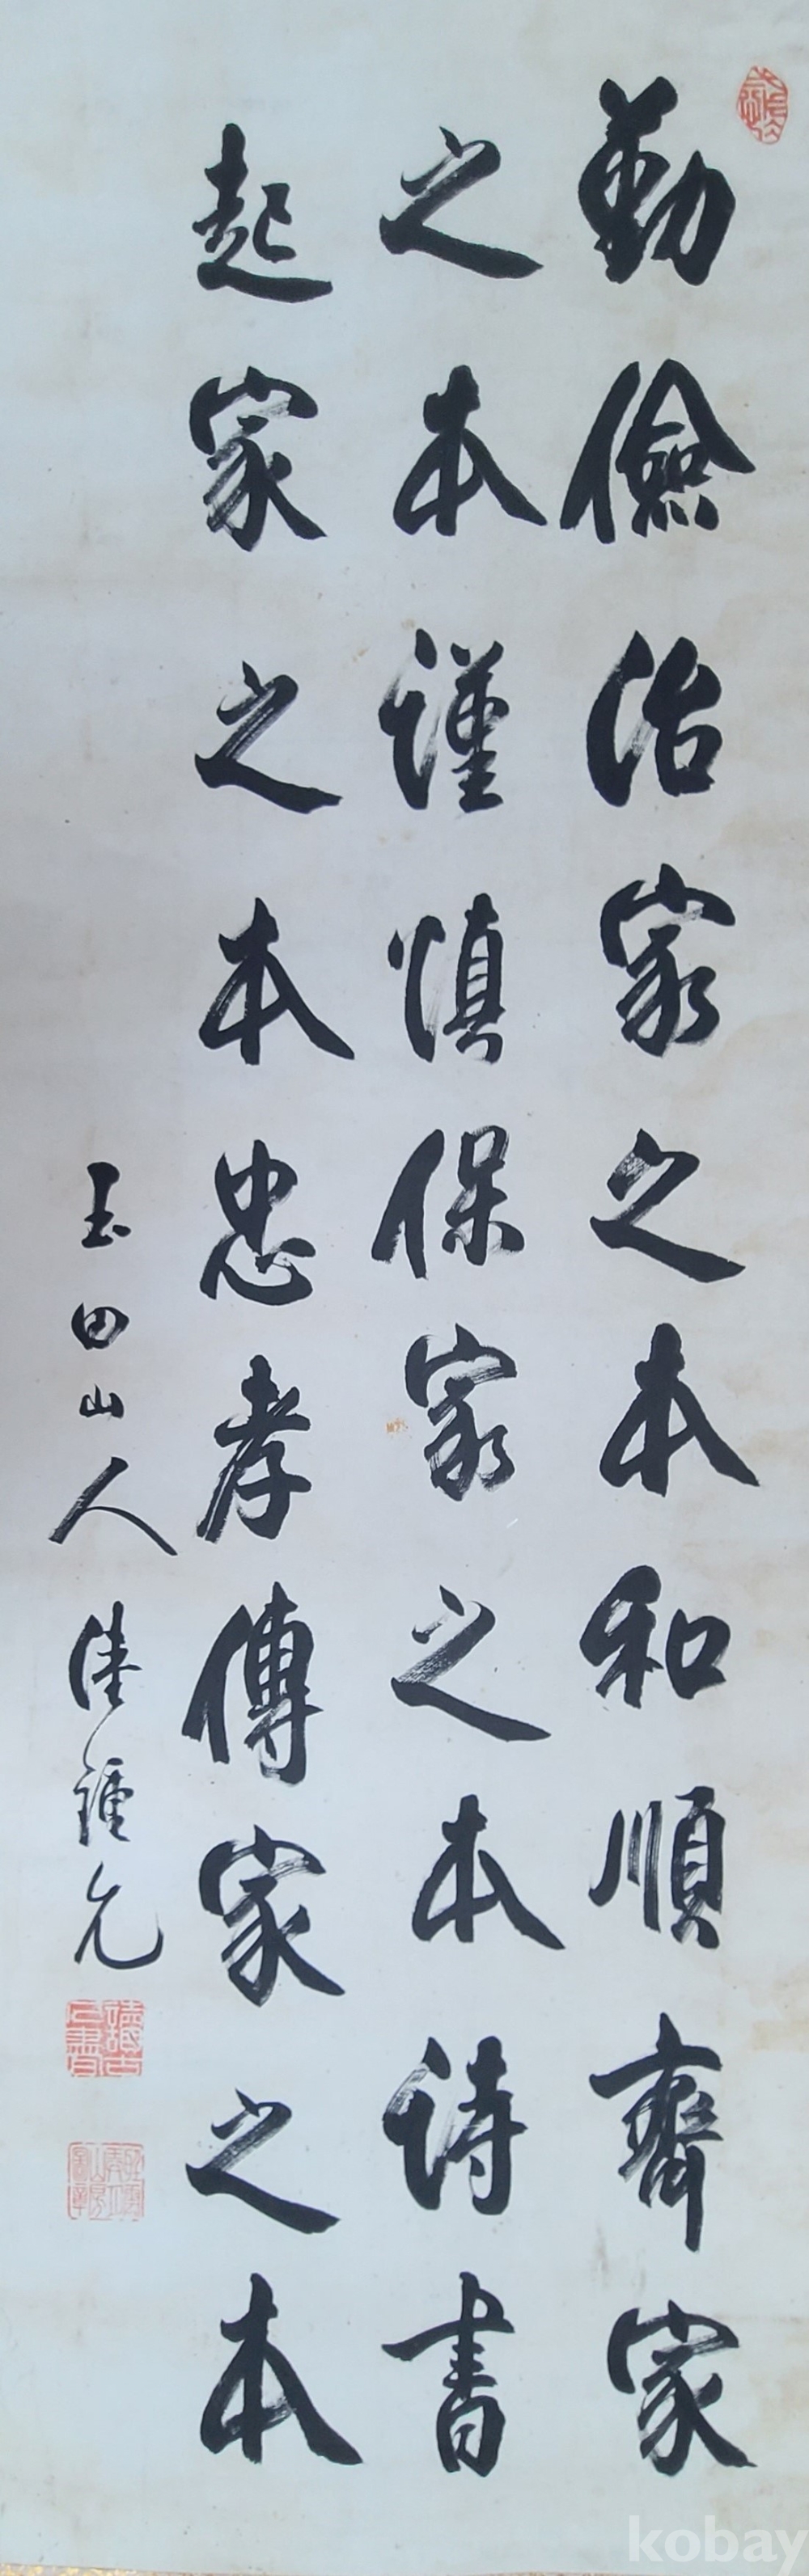 勤儉治家之本和順齊家
之本謹慎保家之本詩書
起家之本忠孝傳家之本
玉田山人
kobay